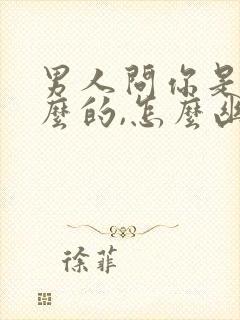 男人問你是
麼的,怎麼幽
徐菲